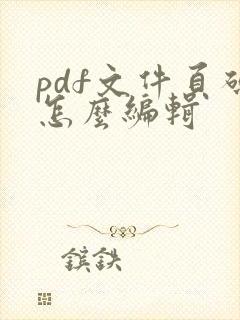 pdf文件頁碼
怎麼編輯
鑌鉄